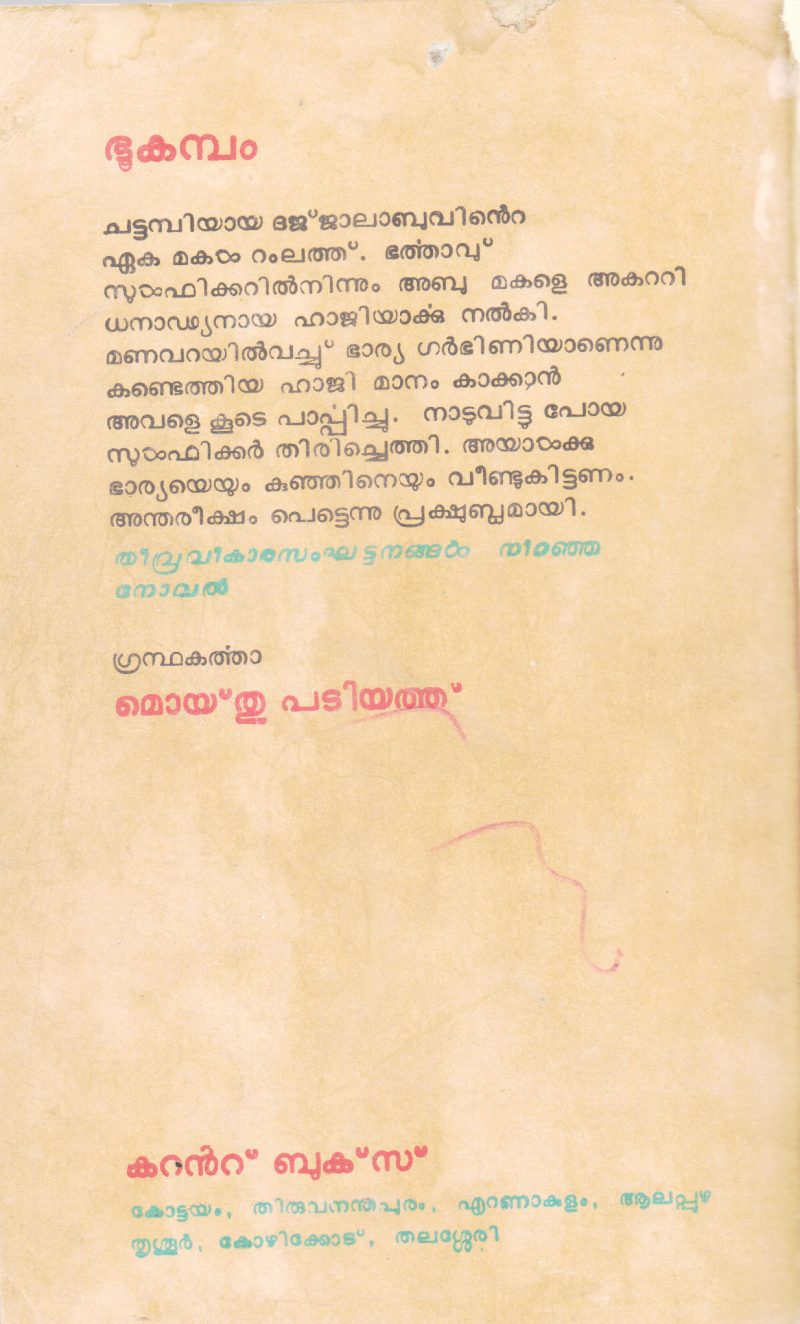 ഭൂകമ്പം
ചട്ടമ്പിയായ ദജ്ജാലാബുവിൻെറ
ഏക മകൾ റംലത്ത്. ഭർത്താവു്
സുൾഫിക്കറിൽനിന്നും അബു മകളെ അകററി
ധനാഢ്യനായ ഹാജിയാർക്കു നൽകി.
മണവറയിൽവച്ചു് ഭാര്യ ഗർഭിണിയാണെന്നു
കണ്ടെത്തിയ ഹാജി മാനം കാക്കാൻ
അവളെ കൂടെ പാർപ്പിച്ചു. നാടുവിട്ടു പോയ
സുൾഫിക്കർ തിരിച്ചെത്തി. അയാൾക്കു
ഭാര്യയെയും കുഞ്ഞിനെയും വീണ്ടുകിട്ടണം.
അന്തരീക്ഷം പെട്ടെന്നു പ്രക്ഷുബ്ധമായി.
തീവ്രവികാരസംഘട്ടനങ്ങൾ നിറഞ്ഞ
നോവൽ
ഗ്രന്ഥകർത്താ
മൊയ്തു പടിയത്ത്
കറൻറ് ബുക്സ്
കോട്ടയം, തിരുവനന്തപുരം, എറണാകുളം, ആലപ്പുഴ
തൃശ്ശൂർ, കോഴിക്കോട്, തലശ്ശേരി